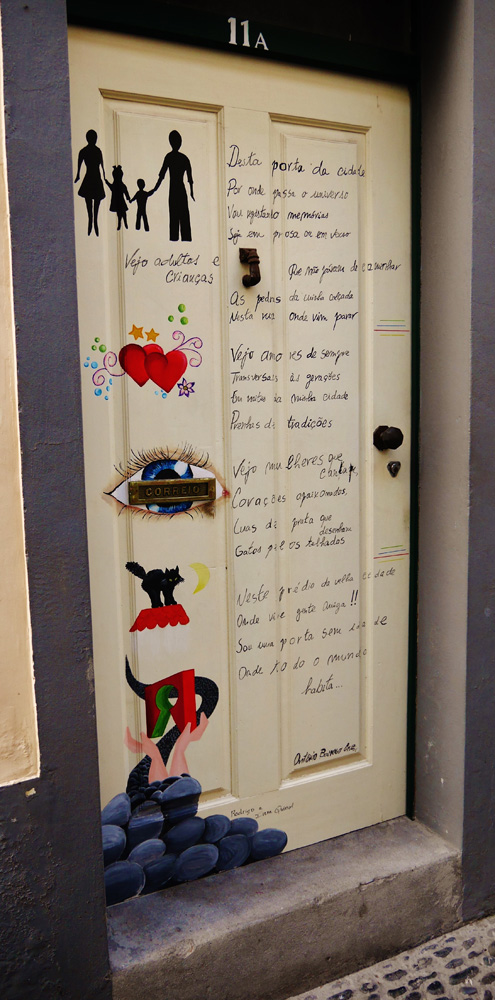 11A
Desta porta da cidade
Por onde passa o universo
Vou registando memórias
Seja em prosa ou em verso
Vejo adultos e
Crianças
Que não param de caminhar
As pedras da minha calçada
Nesta rua onde vim parar
Vejo amores de sempre
Transversais às gerações
Em minha cidade
Prenhas de tradições
Vejo mulheres que
cantam,
Corações apaixonados,
Luas de prata que
desenham
Gatos pelos telhados
CORREIO
Neste prédio da velha cidade
Onde vive gente amiga!!
Sou uma porta sem idade
Onde todo o mundo
habita...
António Barroso Cruz,
Rodrigo e